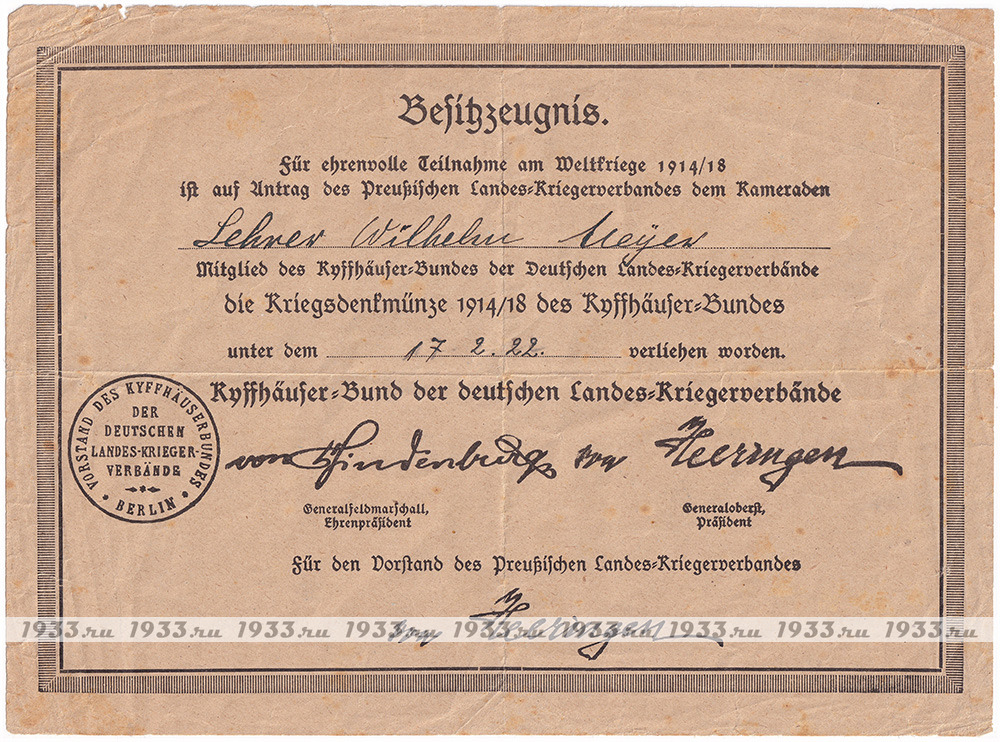 Besitzzeugnis.
Für ehrenvolle Teilnahme am Weltkriege 1914/18
ist auf Antrag des Preußischen Landes-Kriegerverbandes dem Kameraden
Lehrer Wilhelm Meyer
Mitglied des Kyffhäuser-Bundes der Deutschen Landes-Kriegerverbände
die Kriegsdenkmünze 1914/18 des Kyffhäuser-Bundes
unter dem 17 2. 22. verliehen worden.
Kyffhäuser-Bund der deutschen Landes-Kriegerverbände
VORSTAND DES KYFFHÄUSERBUNDES
DER
DEUTSCHEN
LANDES-KRIEGER-
VERBÄNDE
BERLIN
von Hindenburg von Heeringen
Generalfeldmarschall, Generaloberst,
Ehrenpräsident Präsident
Für den Vorstand des Preußischen Landes-Kriegerverbandes
von Heeringen
1933.ru 1933.ru 1933.ru 1933.ru 1933.ru 1933.ru 1933.ru 1933.ru 1933.ru